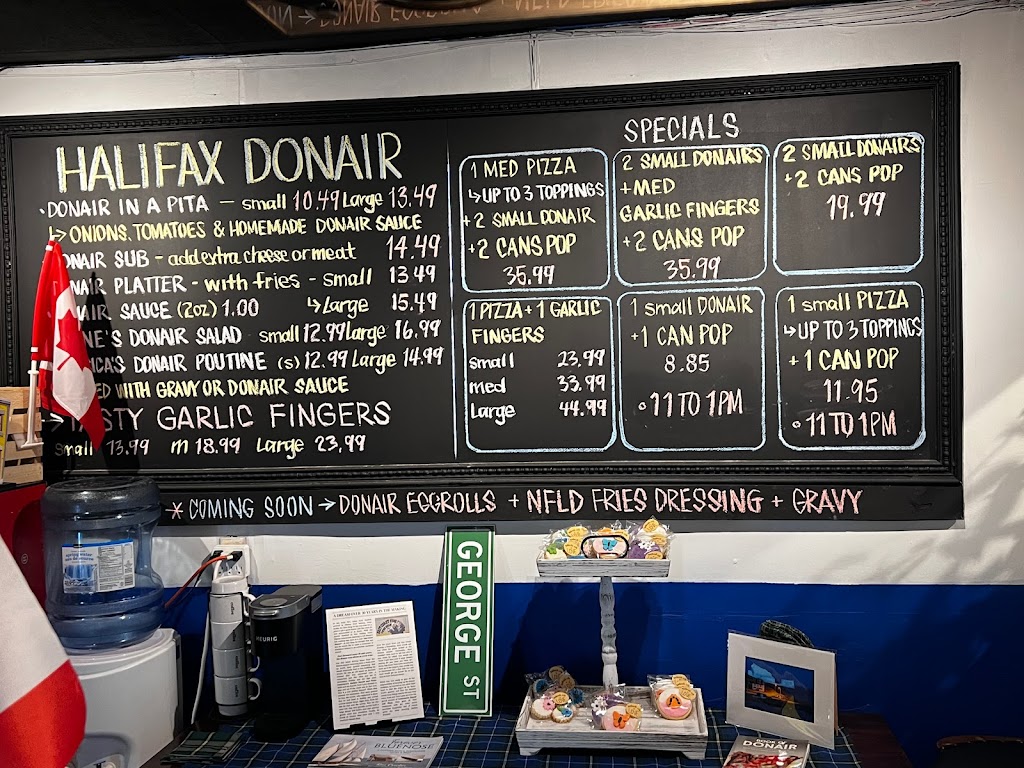 HALIFAX DONAIR
• DONAIR IN A PITA – small 10.49 Large 13.49
↳ ONIONS, TOMATOES & HOMEMADE DONAIR SAUCE
ONAIR SUB - add extra cheese or meat 14.49
NAIR PLATTER - with fries - small 13.49
AIR SAUCE (2oz) 1.00 ↳ Large 15.49
NE'S DONAIR SALAD small 12.99 Large 16.99
ICA'S DONAIR POUTINE (s) 12.99 Large 14.99
ED WITH GRAVY OR DONAIR SAUCE
STY GARLIC FINGERS
small 13.99 m 18.99 Large 23.99
SPECIALS
1 MED PIZZA
↳ UP TO 3 TOPPINGS
+ 2 SMALL DONAIR
+ 2 CANS POP
35.99
2 SMALL DONAIRS
+ MED
GARLIC FINGERS
+ 2 CANS POP
35.99
2 SMALL DONAIRS
+ 2 CANS POP
19.99
1 PIZZA + 1 GARLIC
FINGERS
small 23.99
med 33.99
Large 44.99
1 small DONAIR
+ 1 CAN POP
8.85
• 11 TO 1PM
1 small PIZZA
↳ UP TO 3 TOPPINGS
+ 1 CAN POP
11.95
• 11 TO 1PM
* COMING SOON → DONAIR EGGROLLS + NFLD FRIES DRESSING + GRAVY
GEORGE ST
KEURIG
BLUENOSE
DONAIR